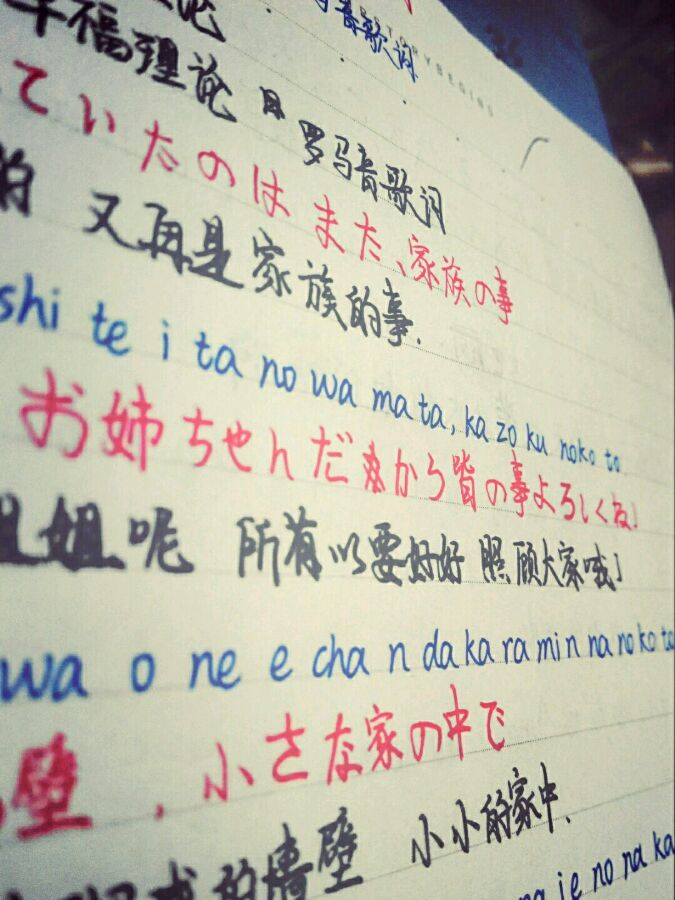 音歌词
STORYBEGINS
幸福理论 日罗马音歌词
ていたのは また、家族の事
的 又再是家族的事.
shi te i ta no wa ma ta, ka zo ku no ko to
お姉ちゃんだから皆の事よろしくね」
姐呢 所有以要好好照顾大家哦」
wa o ne e cha n da ka ra min na no ko to
壁 , 小さな家の中で
的墙壁 小小的家中.
na ie no na ka